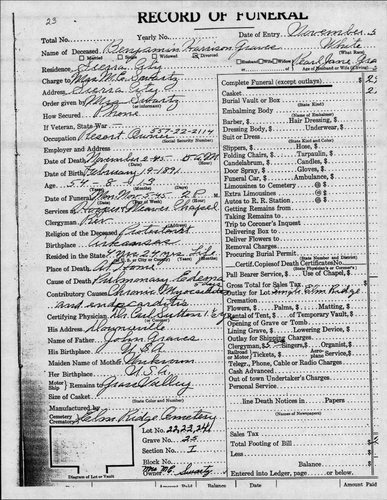 23
RECORD OF FUNERAL
Total No.
Yearly No.
Date of Entry November 3
Name of Deceased Benjamin Harrison Graves
White
(What Race)
Married Single Widowed Divorced
Husband Wife Widow Pearl Jane
Age of Husband or Wife
Residence Sierra City
Charge to Mrs. Mc Swartz
Address Sierra City
Order given by Mrs Swartz
How Secured Phone
If Veteran, State War
Occupation 557-22-2114
(Social Security Number)
Employer and Address
Date of Death November 2-45
Date of Birth February 19-1891
54 - 8 - 13
Date of Funeral Mon Nov 5-45 2 P M
Services at Hooper Weaver Chapel
Clergyman Rev.
Religion of the Deceased Protestant
Birthplace Arkansas
Resided in the State
Place of Death At Home
Cause of Death Pulmonary Edema
Contributory Causes Chronic Myocarditis
and endocarditis
Certifying Physician Dr. Carl Sutton
His Address Downieville
Name of Father John Graves
His Birthplace U.S.A
Maiden Name of Mother Unknown
Her Birthplace U.S.A
Motor Ship Remains to Grass Valley
Size of Casket
(State Color and Number)
Manufactured by
Cemetery Crematory Elm Ridge Cemetery
Lot No. 22, 22, 24
Grave No. 25
Section No. I
Block No.
Owner Swartz
Diagram of Lot or Vault
Complete Funeral (except outlays) $
Casket
Burial Vault or Box
(State Kind)
Embalming Body
(Name of Embalmer)
Barber, Hair Dressing,
Dressing Body, Underwear,
Suit or Dress
(State Kind and Color)
Slippers, Hose,
Folding Chairs, Tarpaulin,
Candelabrum, Candles,
Door Spray, Gloves,
Funeral Car, Ambulance,
Limousines to Cemetery @ $
Extra Limousines @ $
Autos to R. R. Station @ $
Getting Remains from
Taking Remains to
Trip to Coroner's Inquest
Delivering Box to
Deliver Flowers to
Removal Charges
Procuring Burial Permit
Certif. Copies of Death Certificates No.
(State Physician's or Coroner's)
Pall Bearer Service, Use of Chapel,
Gross Total for Sales Tax
Outlay for Lot Elm Ridge
Cremation
Flowers, Palms, Matting,
Rental of Tent, of Temporary Vault,
Opening of Grave or Tomb
Lining Grave, Lowering Device,
Outlay for Shipping Charges
Clergyman, Singers, Organist,
Railroad Motor Plane Tickets, Service
Telegr., Phone, Cable or Radio Charges
Cash Advanced
Out of town Undertaker's Charges
Personal Service
line Death Notices in Papers
(Names of Newspapers)
Sales Tax
Total Footing of Bill
Less
Balance
Entered into Ledger, page or below.
Balance
Date
Amount Paid